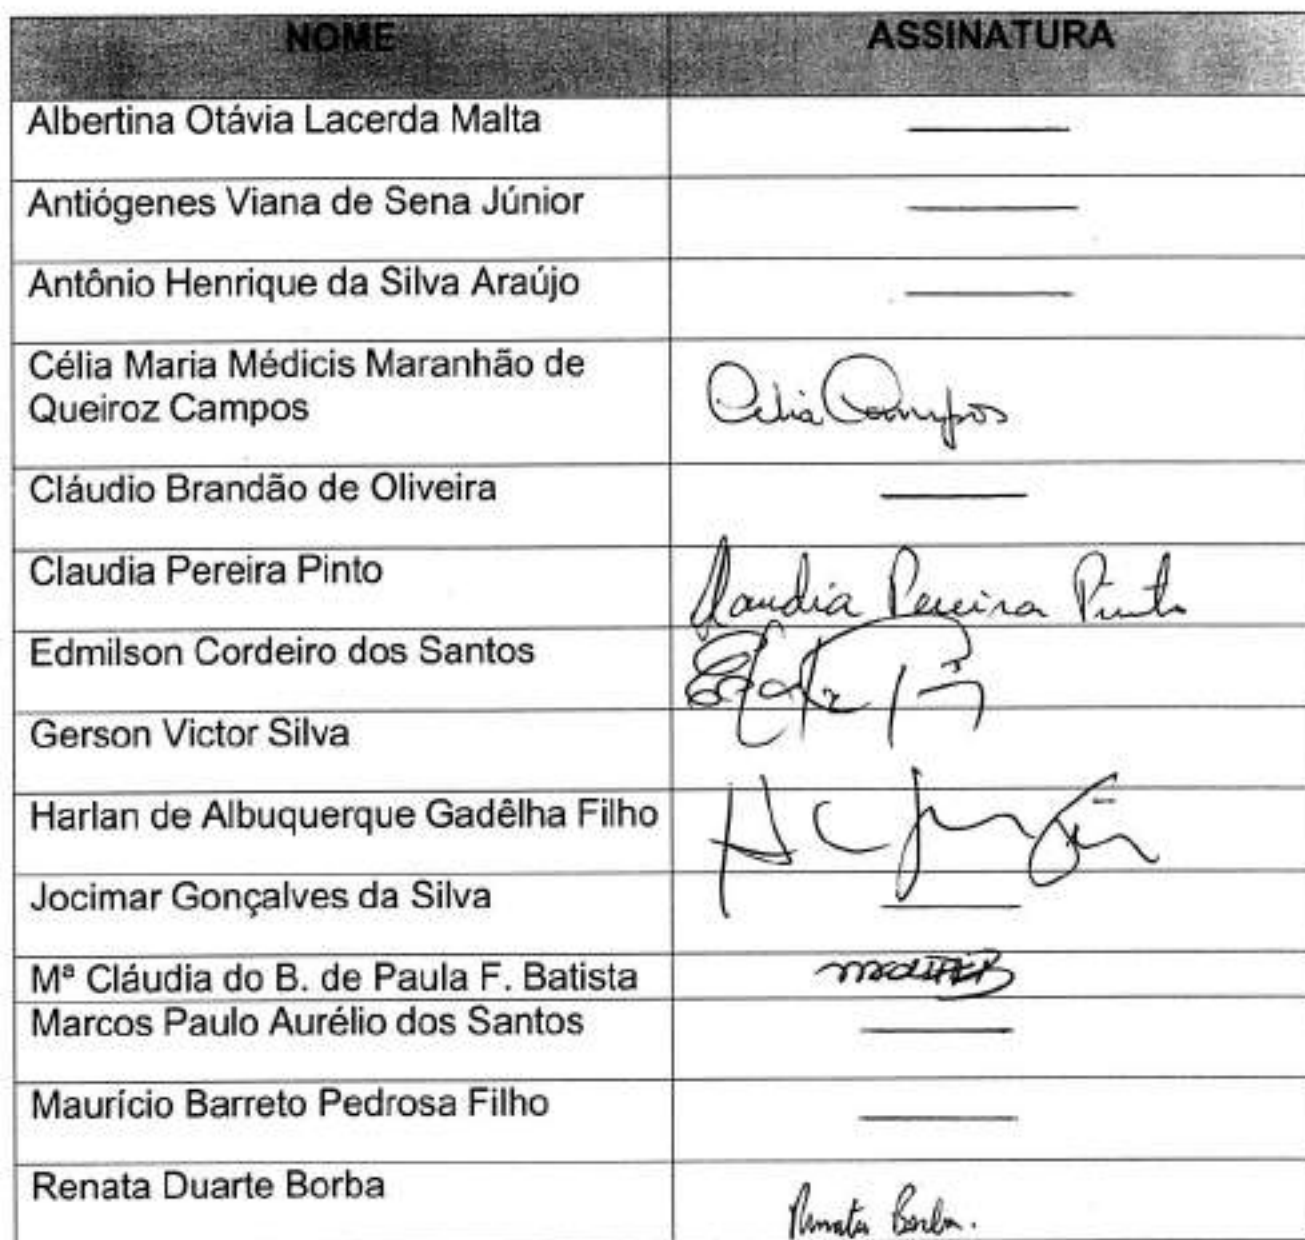 NOME ASSINATURA
Albertina Otávia Lacerda Malta
Antiógenes Viana de Sena Júnior
Antônio Henrique da Silva Araújo
Célia Maria Médicis Maranhão de
Queiroz Campos
Célia Campos
Cláudio Brandão de Oliveira
Claudia Pereira Pinto Claudia Pereira Pinto
Edmilson Cordeiro dos Santos
Gerson Victor Silva
Harlan de Albuquerque Gadêlha Filho
Jocimar Gonçalves da Silva
Mª Cláudia do B. de Paula F. Batista
Marcos Paulo Aurélio dos Santos
Maurício Barreto Pedrosa Filho
Renata Duarte Borba Renata Borba.